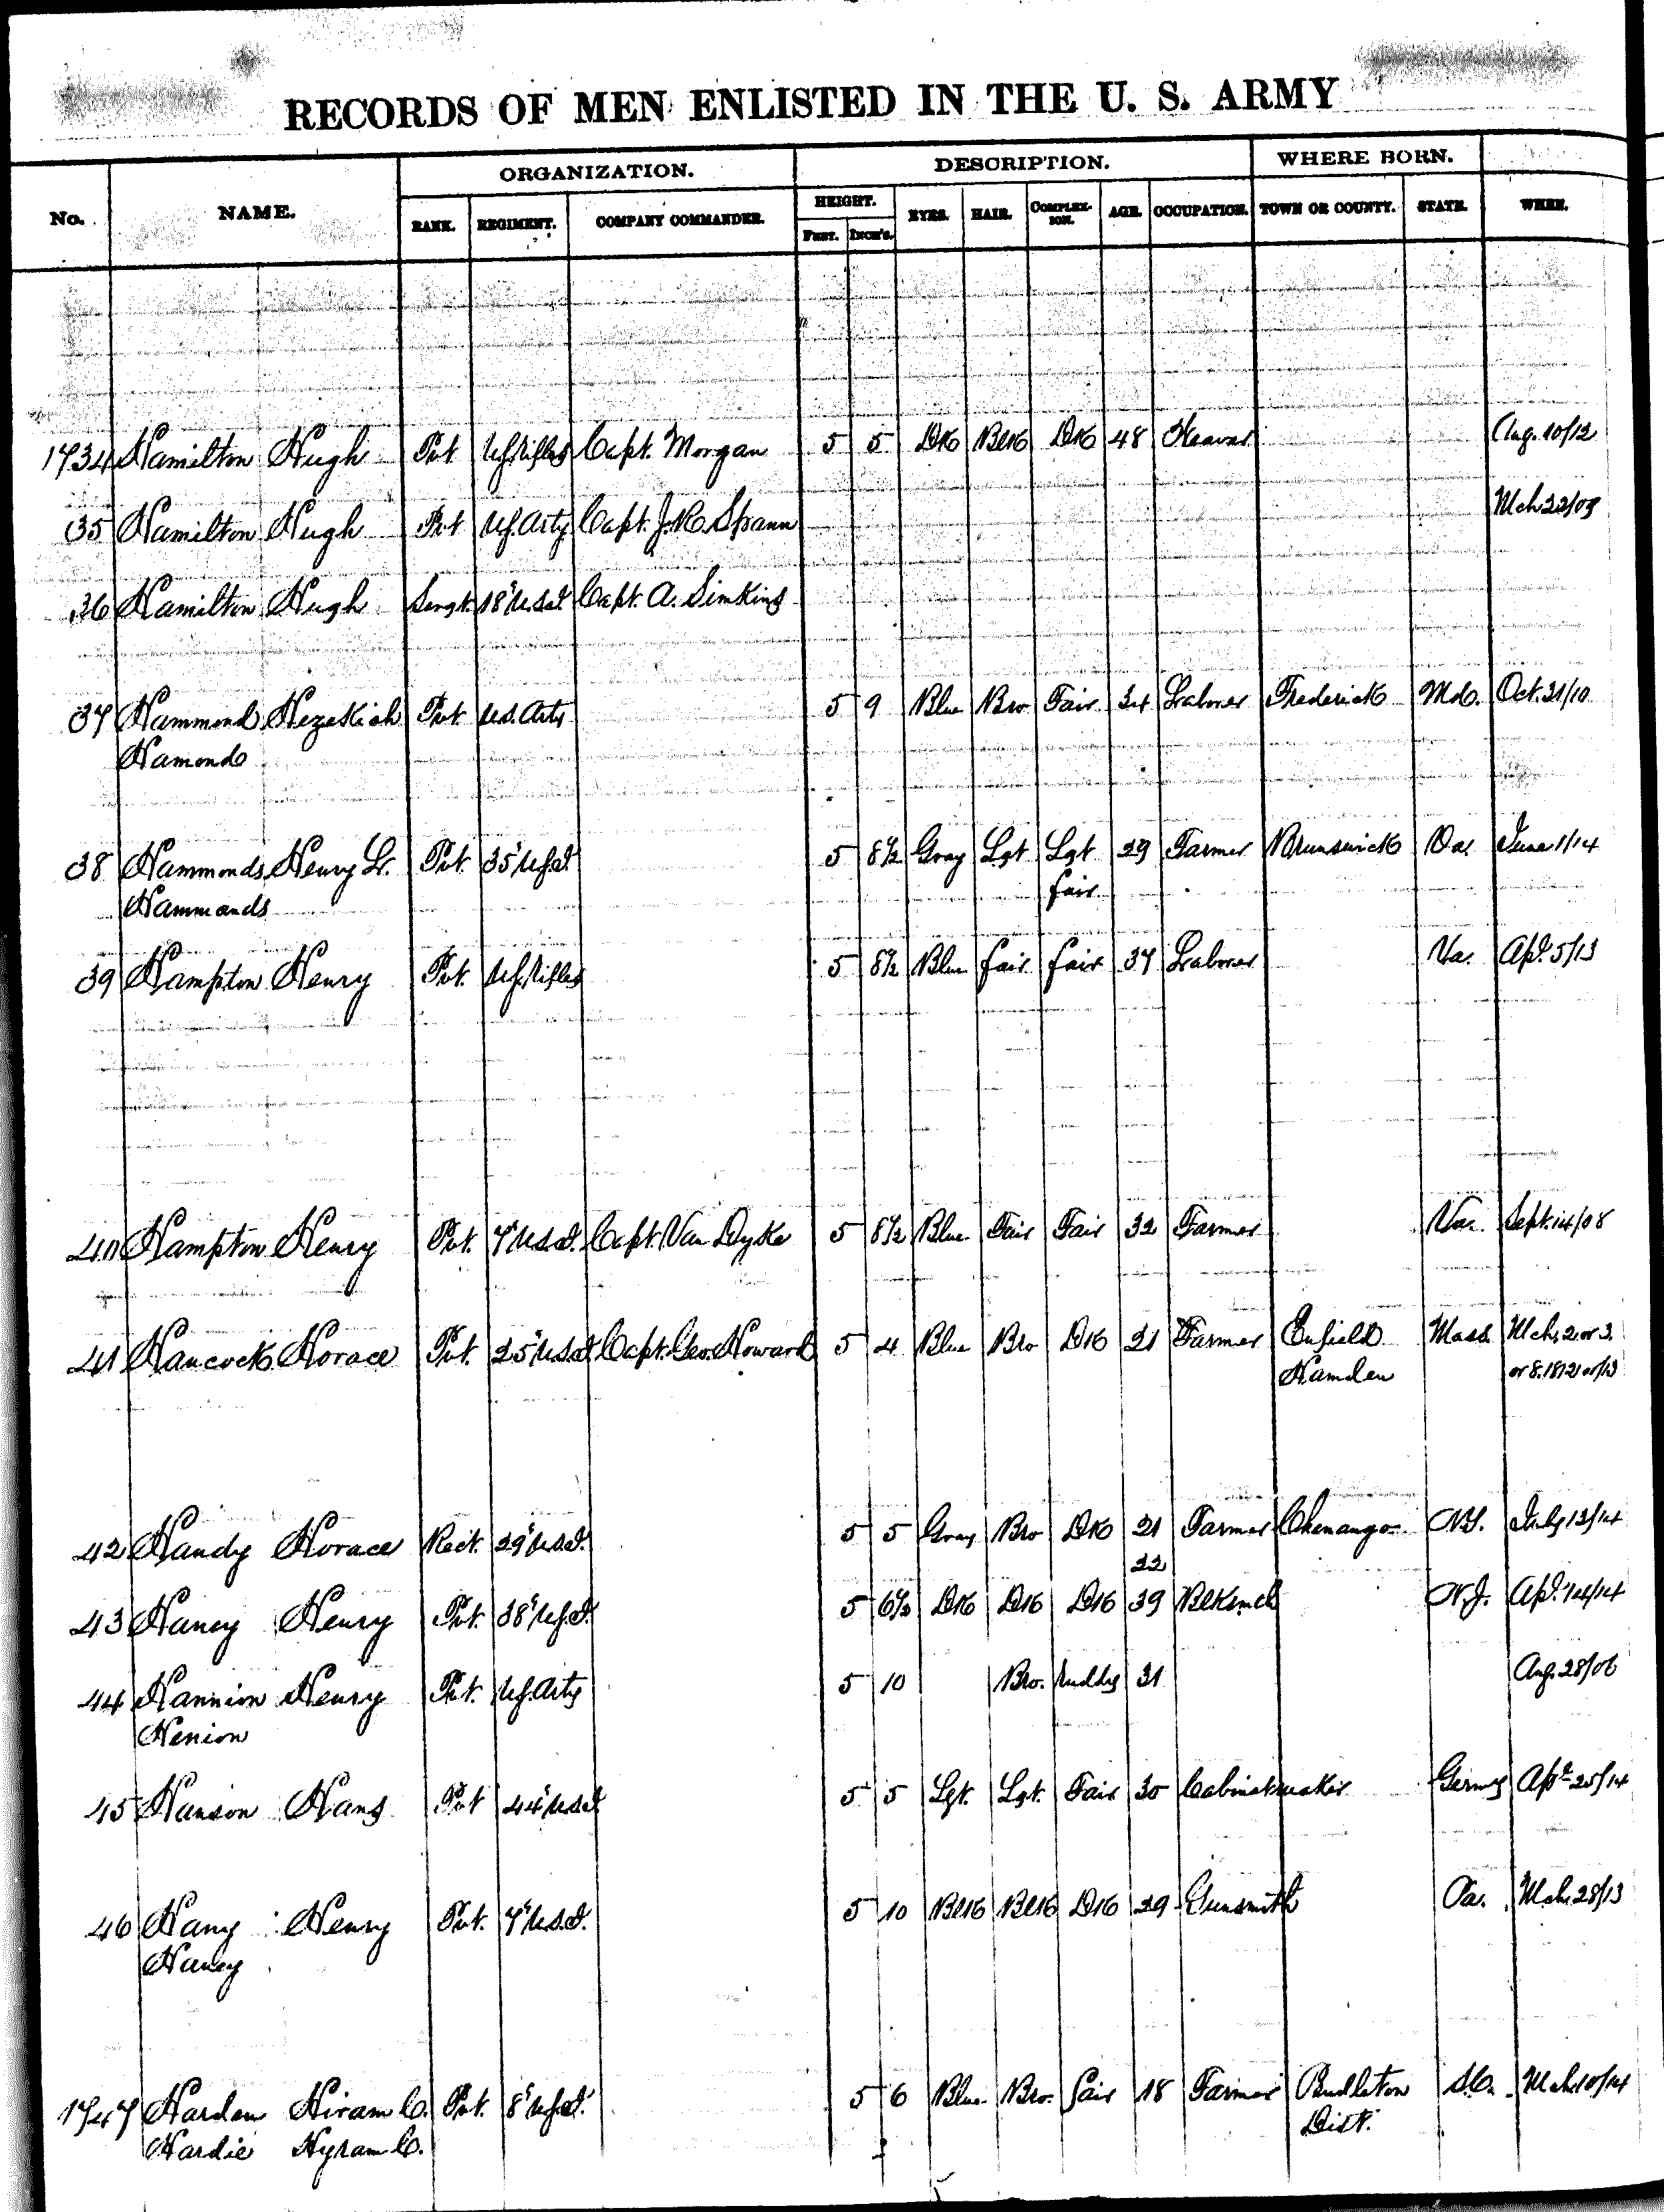 RECORDS OF MEN ENLISTED IN THE U. S. ARMY
ORGANIZATION. DESCRIPTION. WHERE BORN.
No. NAME. RANK. REGIMENT. COMPANY COMMANDER. HEIGHT. EYES. HAIR. COMPLEX-ION. AGE. OCCUPATION. TOWN OR COUNTY. STATE. WHEN.
FEET. INCH'S.
1734 Hamilton Hugh Pvt U.S. Rifles Capt. Morgan 5 5 Dk Blk Dk 48 Weaver Aug. 10/12
35 Hamilton Hugh Pvt U.S. Arty Capt. J. R. Spann Mch 22/09
36 Hamilton Hugh Sergt. 18" U.S.I. Capt. A. Simkins
37 Hammond Hezekiah Pvt. U.S. Arty 5 9 Blue Bro Fair 34 Laborer Frederick Md. Oct. 31/10
Hamond
38 Hammonds, Henry L. Pvt. 35" U.S.I. 5 8½ Gray Lgt Lgt 29 Farmer Brunswick Va. June 1/14
Hammands fair
39 Hampton Henry Pvt. U.S. Rifles 5 8½ Blue fair fair 37 Laborer Va. Apl. 5/13
40 Hampton Henry Pvt. 7" U.S.I. Capt. Van Dyke 5 8½ Blue Fair Fair 32 Farmer Va. Sept. 14/08
41 Hancock Horace Pvt. 25" U.S.I. Capt. Geo. Howard 5 4 Blue Bro Dk 21 Farmer Enfield Mass. Mch, 2 or 3
Hamden or 8. 1812 or/13
42 Handy Horace Rect. 29" U.S.I. 5 5 Gray Bro Dk 21 Farmer Chenango N.Y. July 13/14
22
43 Haney Henry Pvt. 38" U.S.I. 5 6½ Dk Dk Dk 39 Blksmth N.J. Apl. 14/14
44 Hannion Henry Pvt. U.S. Arty 5 10 Bro. Ruddy 31 Aug. 28/06
Henion
45 Hanson Hans Pvt 44" U.S.I. 5 5 Lgt. Lgt. Fair 30 Cabinetmaker Germy Apl. 25/14
46 Hany Henry Pvt. 7" U.S.I. 5 10 Blk Blk Dk 29 Gunsmith Pa. Mch. 28/13
Haney
1747 Harden Hiram C. Pvt. 8" U.S.I. 5 6 Blue Bro. fair 18 Farmer Pendleton S.C. Mch 10/14
Hardie Hyram C. Dist.